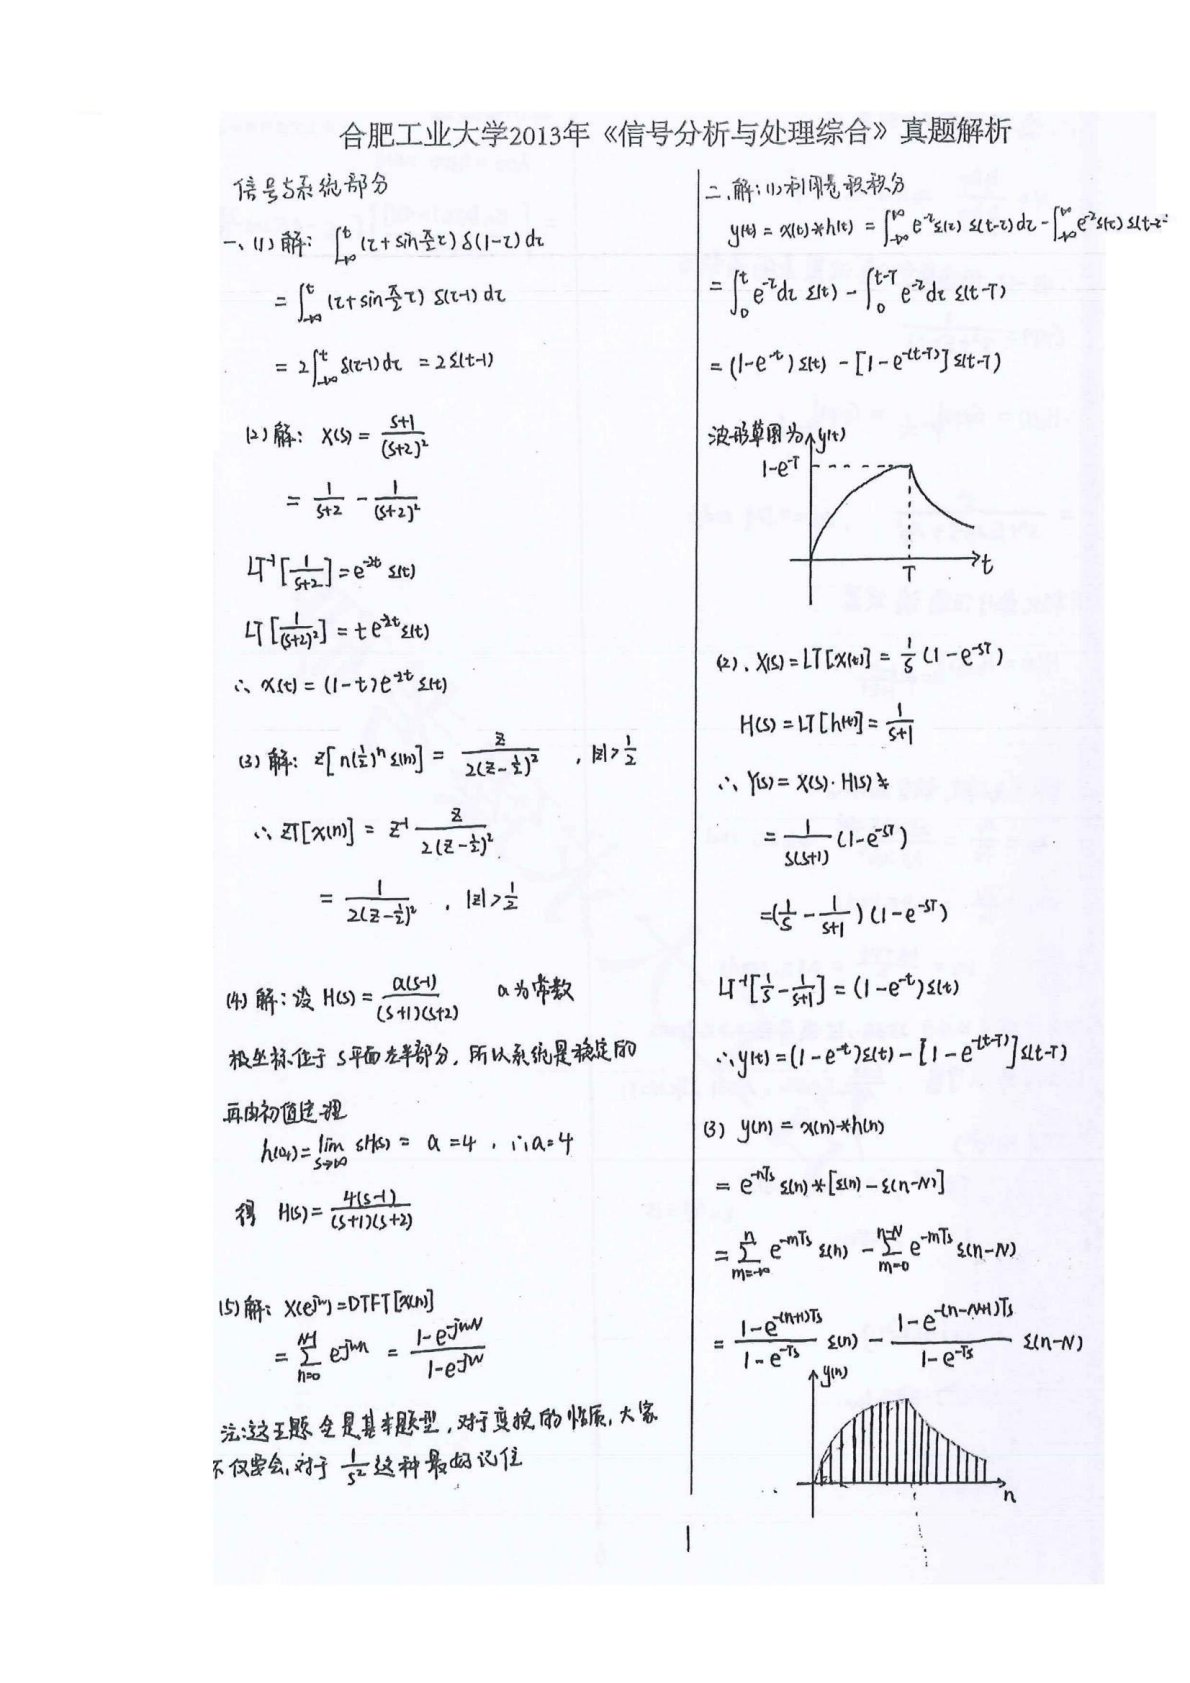 合肥工业大学2013年《信号分析与处理综合》真题解析
信号与系统部分
一、(1) 解: ∫_{-∞}^{t} (τ+sin π/2 τ) δ(1-τ) dτ
= ∫_{-∞}^{t} (τ+sin π/2 τ) δ(τ-1) dτ
= 2∫_{-∞}^{t} δ(τ-1)dτ = 2ε(t-1)
(2) 解: X(s) = (s+1)/(s+2)²
= 1/(s+2) - 1/(s+2)²
LT⁻¹[1/(s+2)] = e^{-2t} ε(t)
LT[1/(s+2)²] = te^{-2t}ε(t)
∴ x(t) = (1-t)e^{-2t} ε(t)
(3) 解: Z[n(1/2)ⁿ ε(n)] = z/(2(z-1/2)²) , |z|>1/2
∴ ZT[x(n)] = z⁻¹ z/(2(z-1/2)²)
= 1/(2(z-1/2)²) , |z|>1/2
(4) 解: 设 H(s) = a(s-1)/((s+1)(s+2)) a为常数
极坐标位于 s平面左半部分, 所以系统是稳定的
再由初值定理
h(0₊) = lim_{s→∞} sH(s) = a = 4 , ∴a=4
得 H(s) = 4(s-1)/((s+1)(s+2))
(5) 解: X(e^{jw}) = DTFT[x(n)]
= Σ_{n=0}^{N-1} e^{-jwn} = (1-e^{-jwN})/(1-e^{-jw})
注:这五题全是基本题型, 对于变换的性质, 大家
不仅要会, 对于 1/s² 这种最好记住
二、解: (1) 利用卷积积分
y(t) = x(t)*h(t) = ∫_{-∞}^{∞} e^{-τ}ε(τ) ε(t-τ)dτ - ∫_{-∞}^{∞} e^{-τ}ε(τ) ε(t-τ-
= ∫_{0}^{t} e^{-τ}dτ ε(t) - ∫_{0}^{t-T} e^{-τ}dτ ε(t-T)
= (1-e^{-t})ε(t) - [1-e^{-(t-T)}]ε(t-T)
波形草图为 y(t)
1-e^{-T}
T t
(2). X(s) = LT[x(t)] = 1/s (1-e^{-sT})
H(s) = LT[h(t)] = 1/(s+1)
∴ Y(s) = X(s)·H(s)
= 1/(s(s+1)) (1-e^{-sT})
= (1/s - 1/(s+1)) (1-e^{-sT})
LT⁻¹[1/s - 1/(s+1)] = (1-e^{-t})ε(t)
∴ y(t) = (1-e^{-t})ε(t) - [1-e^{-(t-T)}]ε(t-T)
(3) y(n) = x(n)*h(n)
= e^{-nTs} ε(n) * [ε(n)-ε(n-N)]
= Σ_{m=-∞}^{n} e^{-mTs} ε(n) - Σ_{m=0}^{n-N} e^{-mTs} ε(n-N)
= (1-e^{-(n+1)Ts})/(1-e^{-Ts}) ε(n) - (1-e^{-(n-N+1)Ts})/(1-e^{-Ts}) ε(n-N)
y(n)
n
1